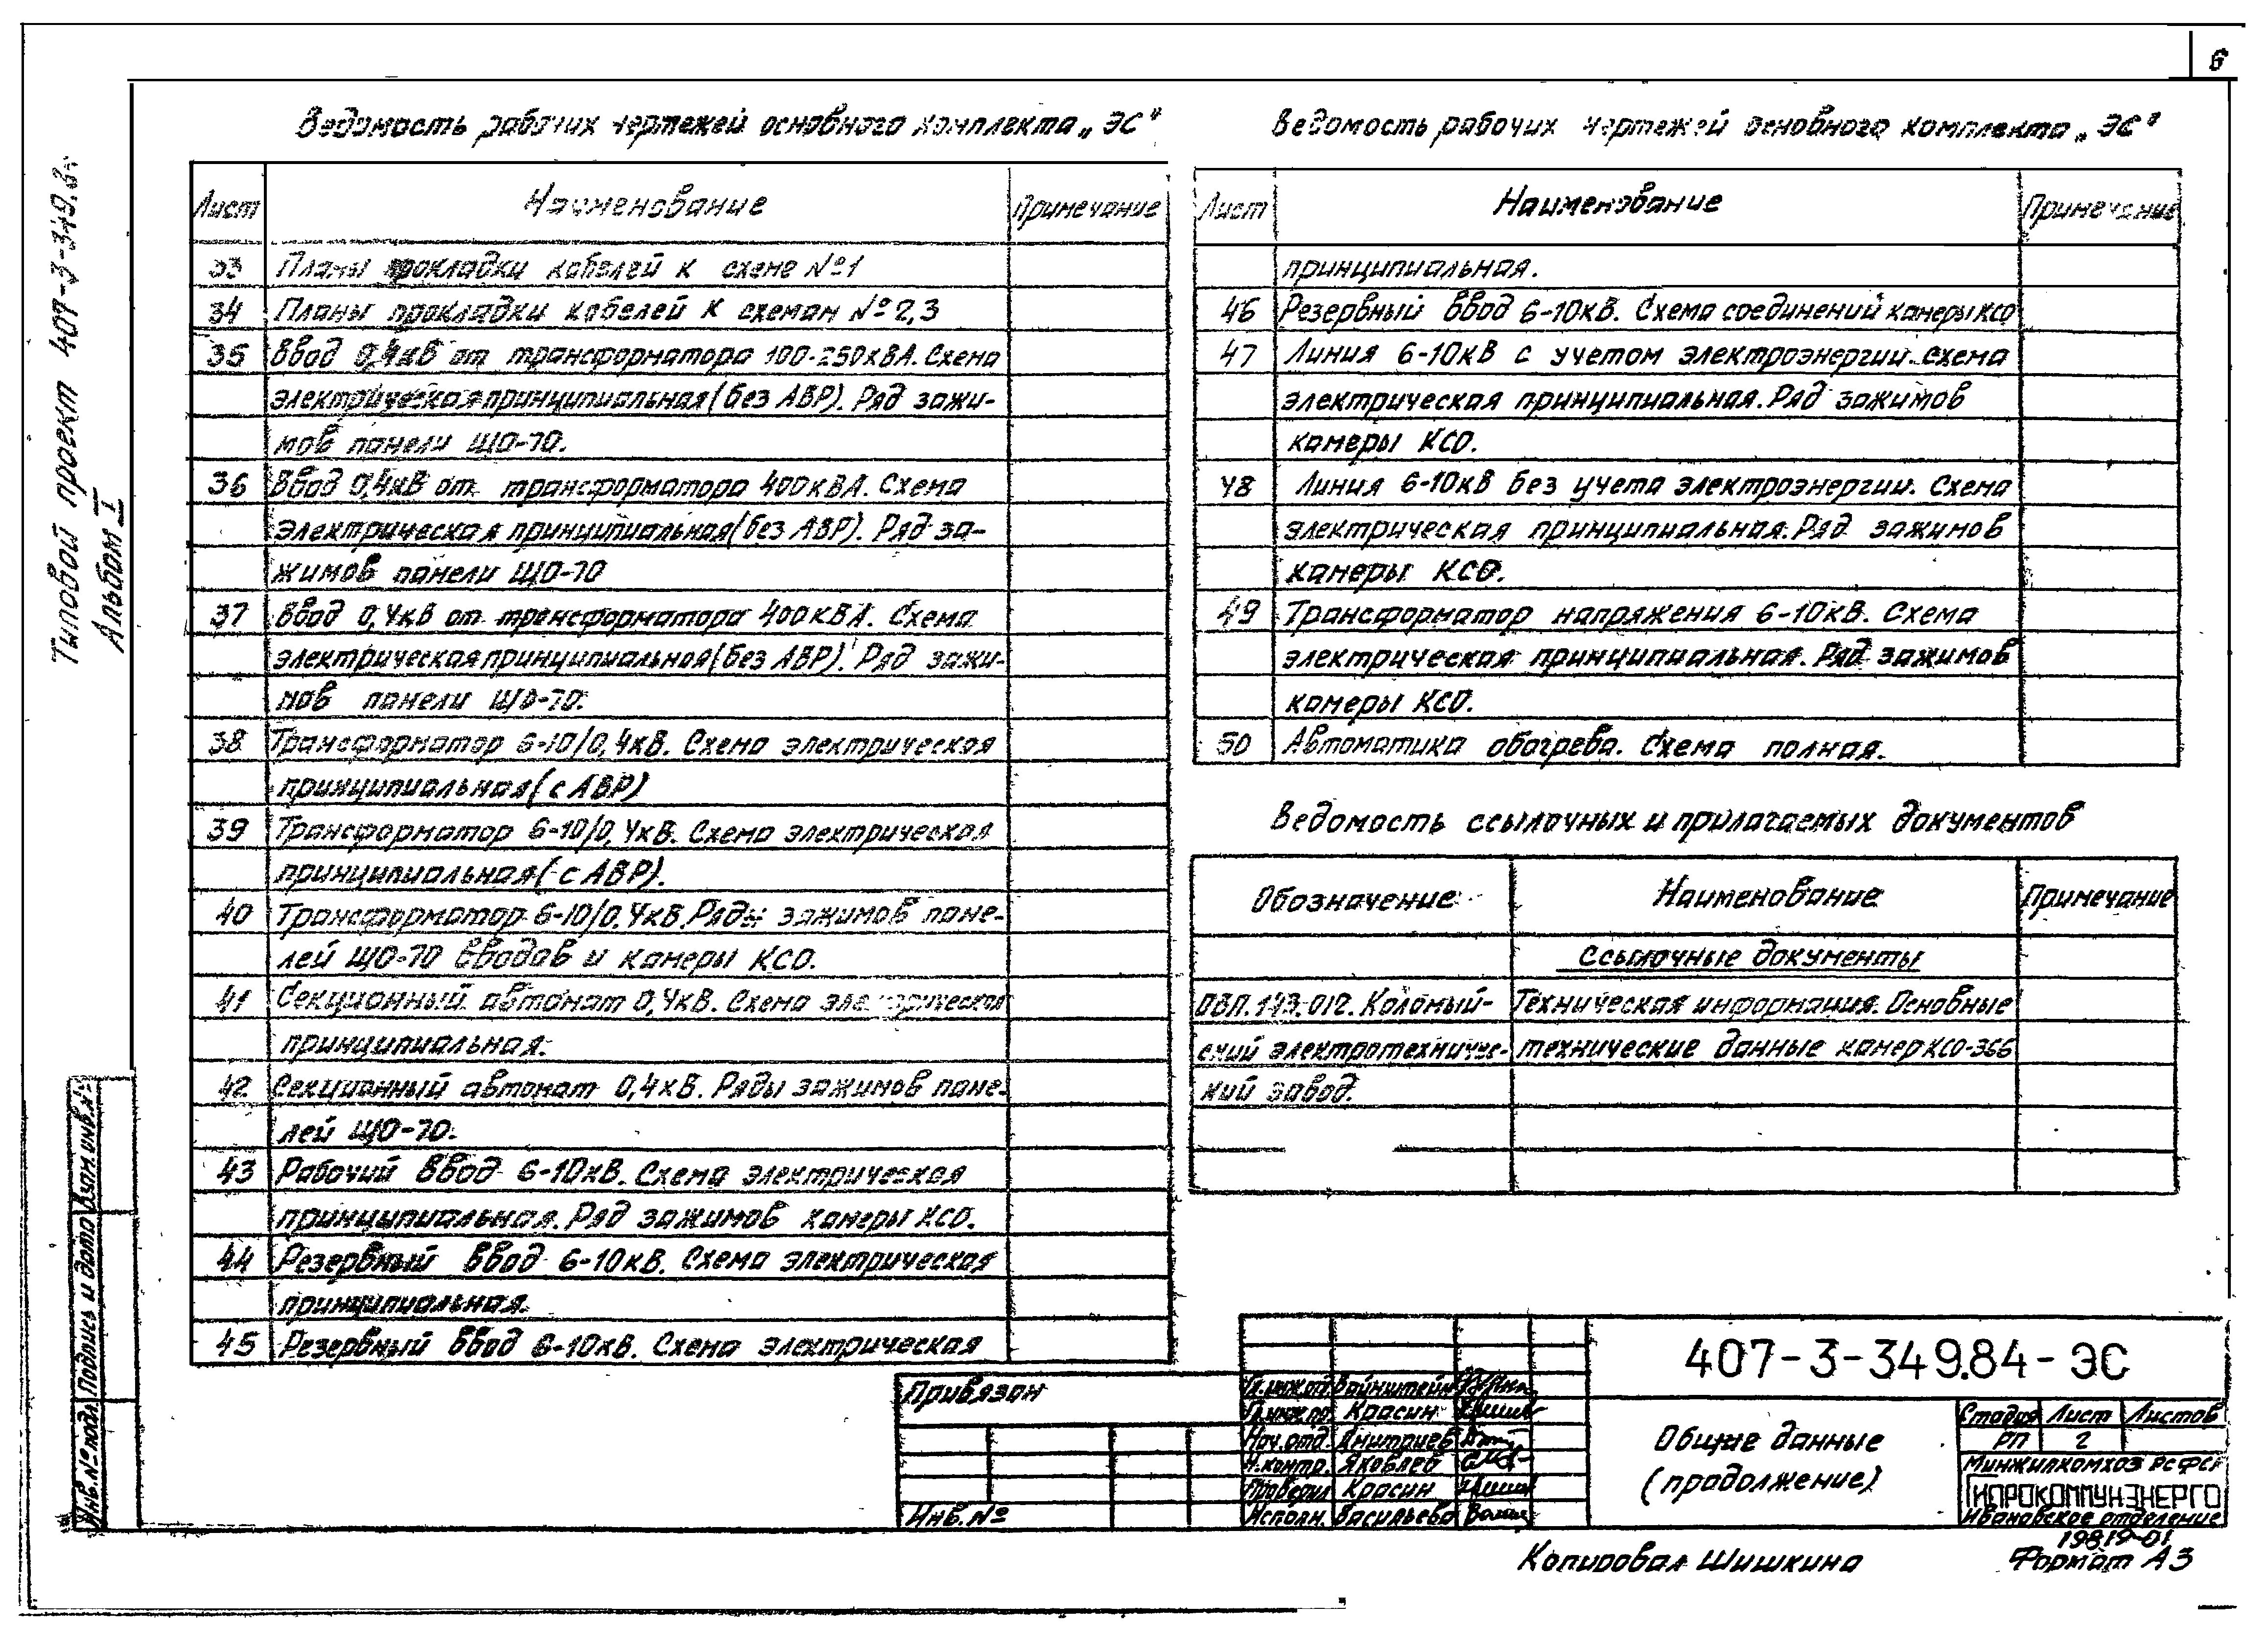 6
Типовой проект 407-3-349.84
Альбом I
Ведомость рабочих чертежей основного комплекта „ЭС"
Лист Наименование Примечание
33 Планы прокладки кабелей к схеме №1
34 Планы прокладки кабелей к схемам №2,3
35 Ввод 0,4кВ от трансформатора 100-250кВА. Схема
электрическая принципиальная (без АВР). Ряд зажи-
мов панели ЩО-70.
36 Ввод 0,4кВ от трансформатора 400кВА. Схема
электрическая принципиальная (без АВР). Ряд за-
жимов панели ЩО-70
37 Ввод 0,4кВ от трансформатора 400кВА. Схема
электрическая принципиальная (без АВР). Ряд зажи-
мов панели ЩО-70.
38 Трансформатор 6-10/0,4кВ. Схема электрическая
принципиальная (с АВР)
39 Трансформатор 6-10/0,4кВ. Схема электрическая
принципиальная (с АВР).
40 Трансформатор 6-10/0,4кВ. Ряды зажимов пане-
лей ЩО-70 вводов и камеры КСО.
41 Секционный автомат 0,4кВ. Схема электрическая
принципиальная.
42 Секционный автомат 0,4кВ. Ряды зажимов пане-
лей ЩО-70.
43 Рабочий ввод 6-10кВ. Схема электрическая
принципиальная. Ряд зажимов камеры КСО.
44 Резервный ввод 6-10кВ. Схема электрическая
принципиальная.
45 Резервный ввод 6-10кВ. Схема электрическая
Ведомость рабочих чертежей основного комплекта „ЭС"
Лист Наименование Примечание
принципиальная.
46 Резервный ввод 6-10кВ. Схема соединений камеры КСО
47 Линия 6-10кВ с учетом электроэнергии. Схема
электрическая принципиальная. Ряд зажимов
камеры КСО.
48 Линия 6-10кВ без учета электроэнергии. Схема
электрическая принципиальная. Ряд зажимов
камеры КСО.
49 Трансформатор напряжения 6-10кВ. Схема
электрическая принципиальная. Ряд зажимов
камеры КСО.
50 Автоматика обогрева. Схема полная.
Ведомость ссылочных и прилагаемых документов
Обозначение Наименование Примечание
Ссылочные документы
ОВЛ.143.012. Коломый- Техническая информация. Основные
ский электротехничес- технические данные камер КСО-366
кий завод.
Взам.инв.№
Подпись и дата
Инв.№ подл.
Привязан
Инв.№
Гл.инж.отд. Вайнштейн
Гл.инж.пр. Красин
Нач.отд. Дмитриев
Н.контр. Яковлев
Проверил Красин
Исполн. Васильева
407-3-349.84-ЭС
Общие данные
(продолжение)
Стадия Лист Листов
РП 2
Минжилкомхоз РСФСР
ГИПРОКОММУНЭНЕРГО
Ивановское отделение
19819-01
Копировал Шишкина
Формат А3